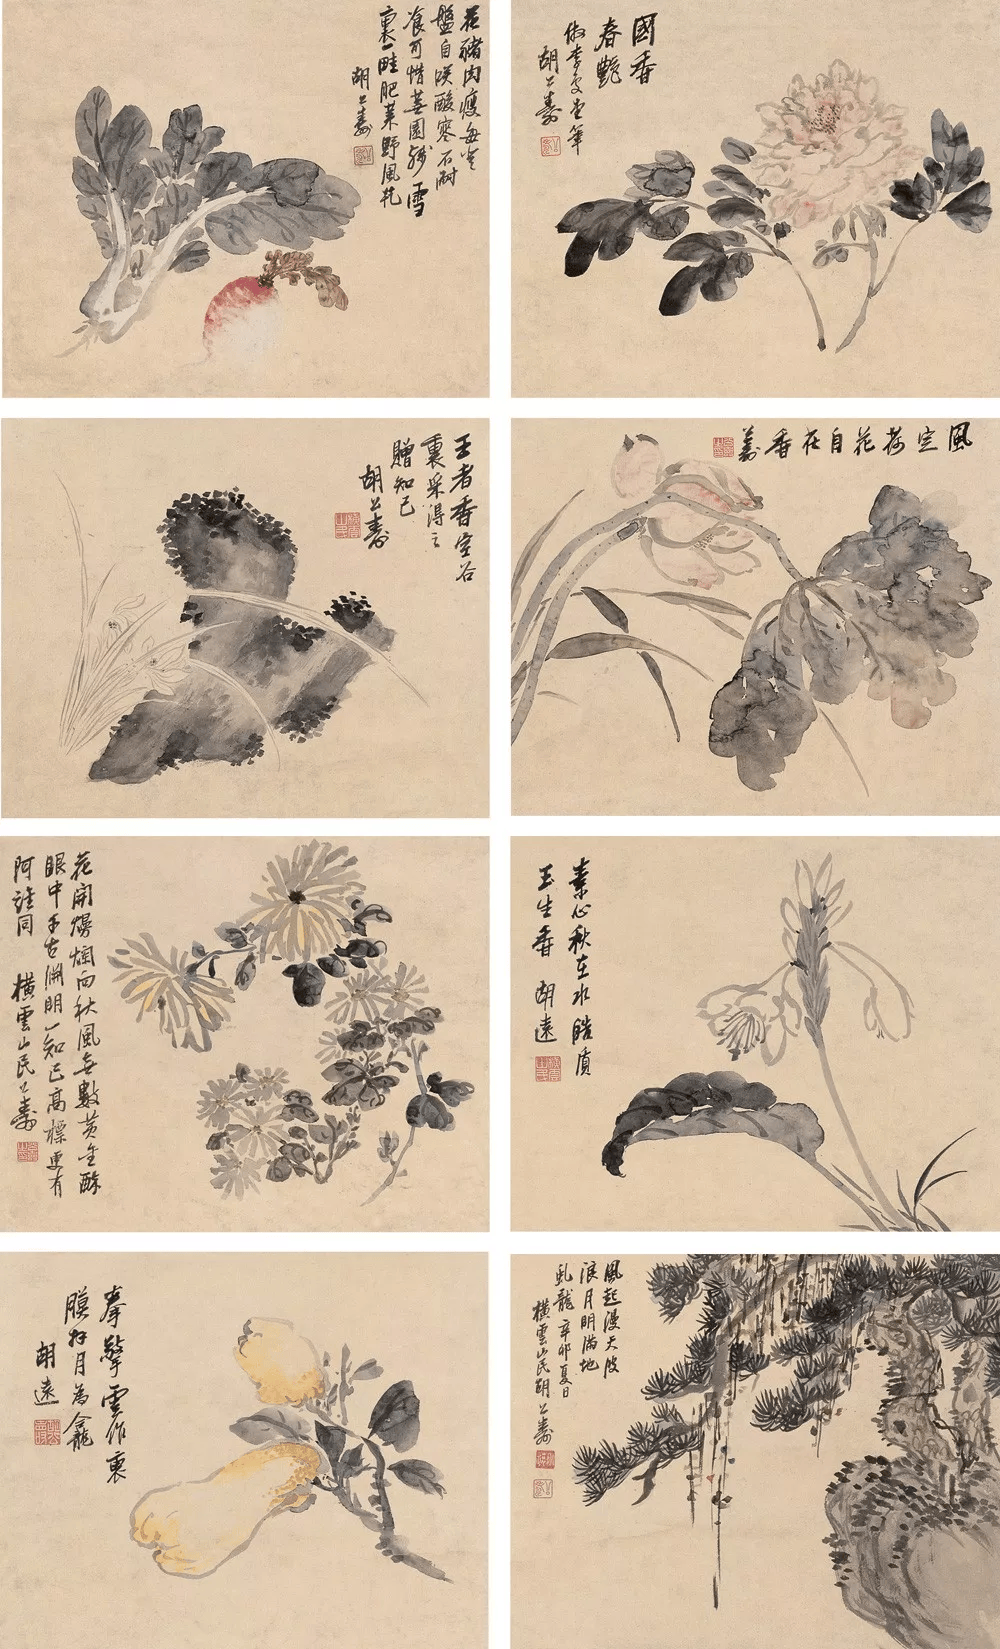 花豬肉瘦每登
盤自咲酸寒不耐
飡可惜園殘雪
裏一畦肥菜野風乾
胡公壽
國香
春艷
倣李復堂筆
胡公壽
王者香空谷
裏采得之
贈知己
胡公壽
風定荷花自在香 公壽
花開熳爛向秋風無數黃金醉
眼中千古淵明一知己高標更有
阿誰同 橫雲山民公壽
素心秋在水皓質
玉生香 胡遠
拳擎雲作裹
膜拜月為龕
胡遠
風起漫天波
浪月明滿地
虬龍 辛卯夏日
橫雲山民胡公壽